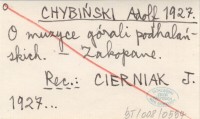 CHYBIŃSKI Adolf 1927.
O muzyce górali podhalań-
skich. – Zakopane.
Rec.: CIERNIAK J.
1927...